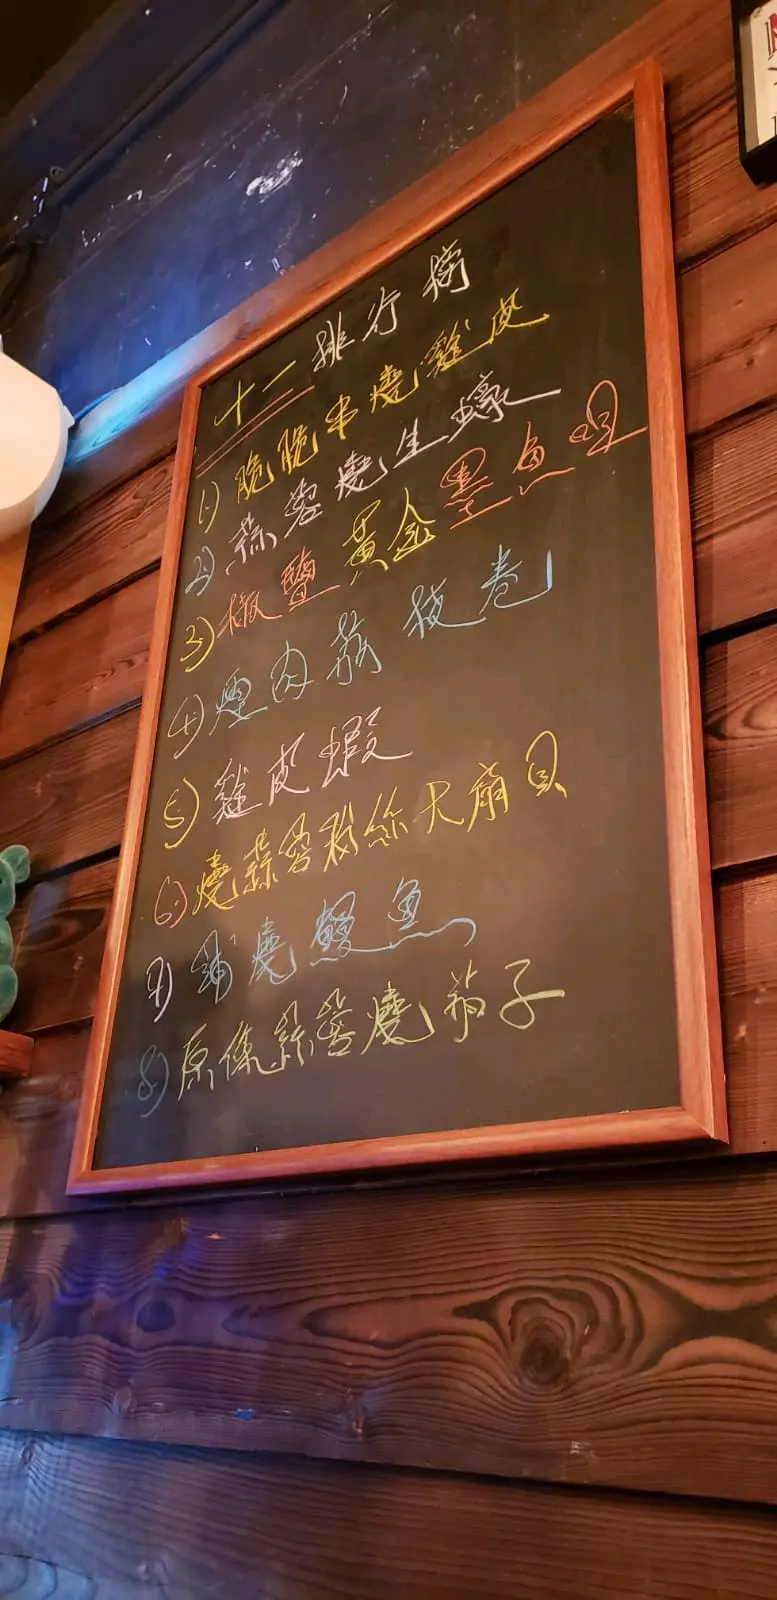 十一排行榜
1) 脆脆串燒雞皮
2) 蒜蓉燒生蠔
3) 椒鹽黃金墨魚咀
4) 煙肉荔枝卷
5) 雞皮蝦
6) 燒蒜蓉粉絲大扇貝
7) 鋪燒鰻魚
8) 原條蒜蓉燒茄子